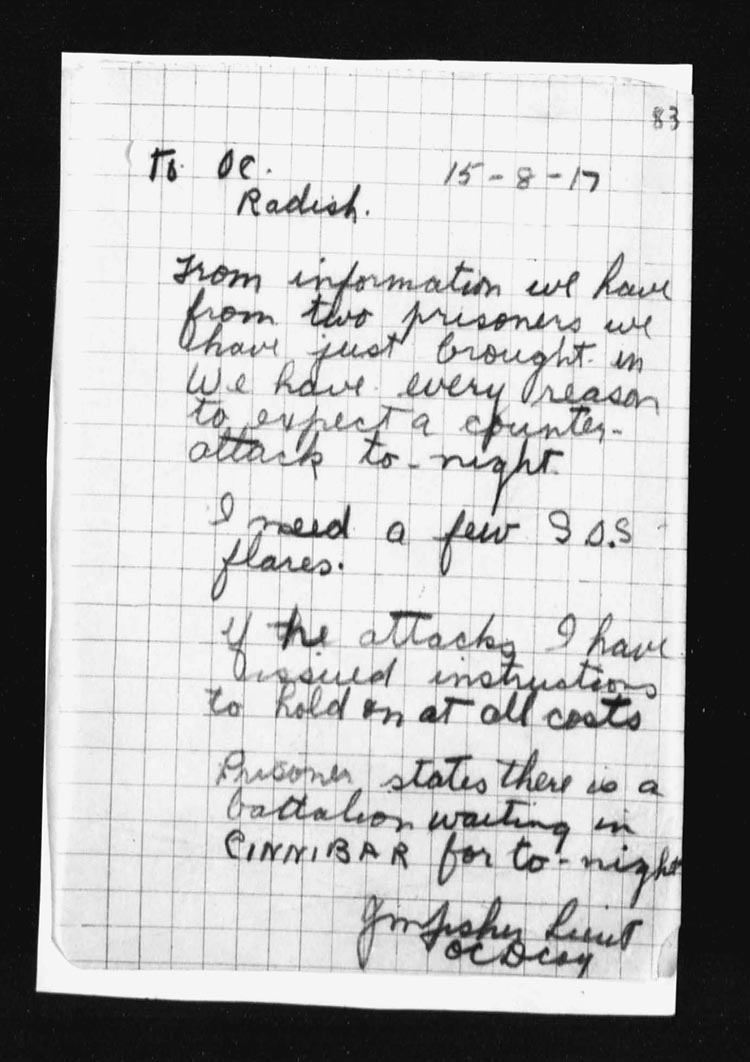 83
To OC. 15-8-17
Radish.
From information we have
from two prisoners we
have just brought in
We have every reason
to expect a counter-
attack to-night.
I need a few S O.S
flares.
If he attacks I have
issued instructions
to hold on at all costs
Prisoner states there is a
battalion waiting in
CINNIBAR for to-night
Lieut
OC D Coy